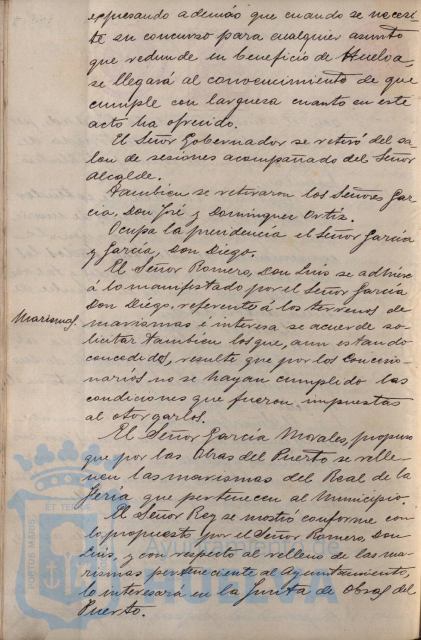 expresando además que cuando se necesi-
te su concurso para cualquier asunto
que redunde en beneficio de Huelva,
se llegará al convencimiento de que
cumple con largueza cuanto en este
acto ha ofrecido.
El Señor Gobernador se retiró del sa-
lon de sesiones acompañado del Señor
Alcalde.
Tambien se retiraron los Señores Gar-
cia, Don José y Dominguez Ortiz.
Ocupa la presidencia el Señor Garcia
y Garcia, Don Diego.
El Señor Romero, Don Luis se adhiere
á lo manifestado por el Señor Garcia
Don Diego, referente á los terrenos de
Marismas.
marismas é interesa se acuerde so-
licitar tambien los que, aun estando
concedidos, resulte que por los concesio-
narios no se hayan cumplido las
condiciones que fueron impuestas
al otorgarlos.
El Señor Garcia Morales, propuso
que por las Obras del Puerto se relle-
nen las marismas del Real de la
Feria que pertenecen al Municipio.
El Señor Rey se mostró conforme con
lo propuesto por el Señor Romero, Don
Luis, y con respecto al relleno de las ma-
rismas perteneciente al Ayuntamiento,
lo interesará en la Junta de Obras del
Puerto.
PORTUS MARIS
ET TERRAE
HUELVA